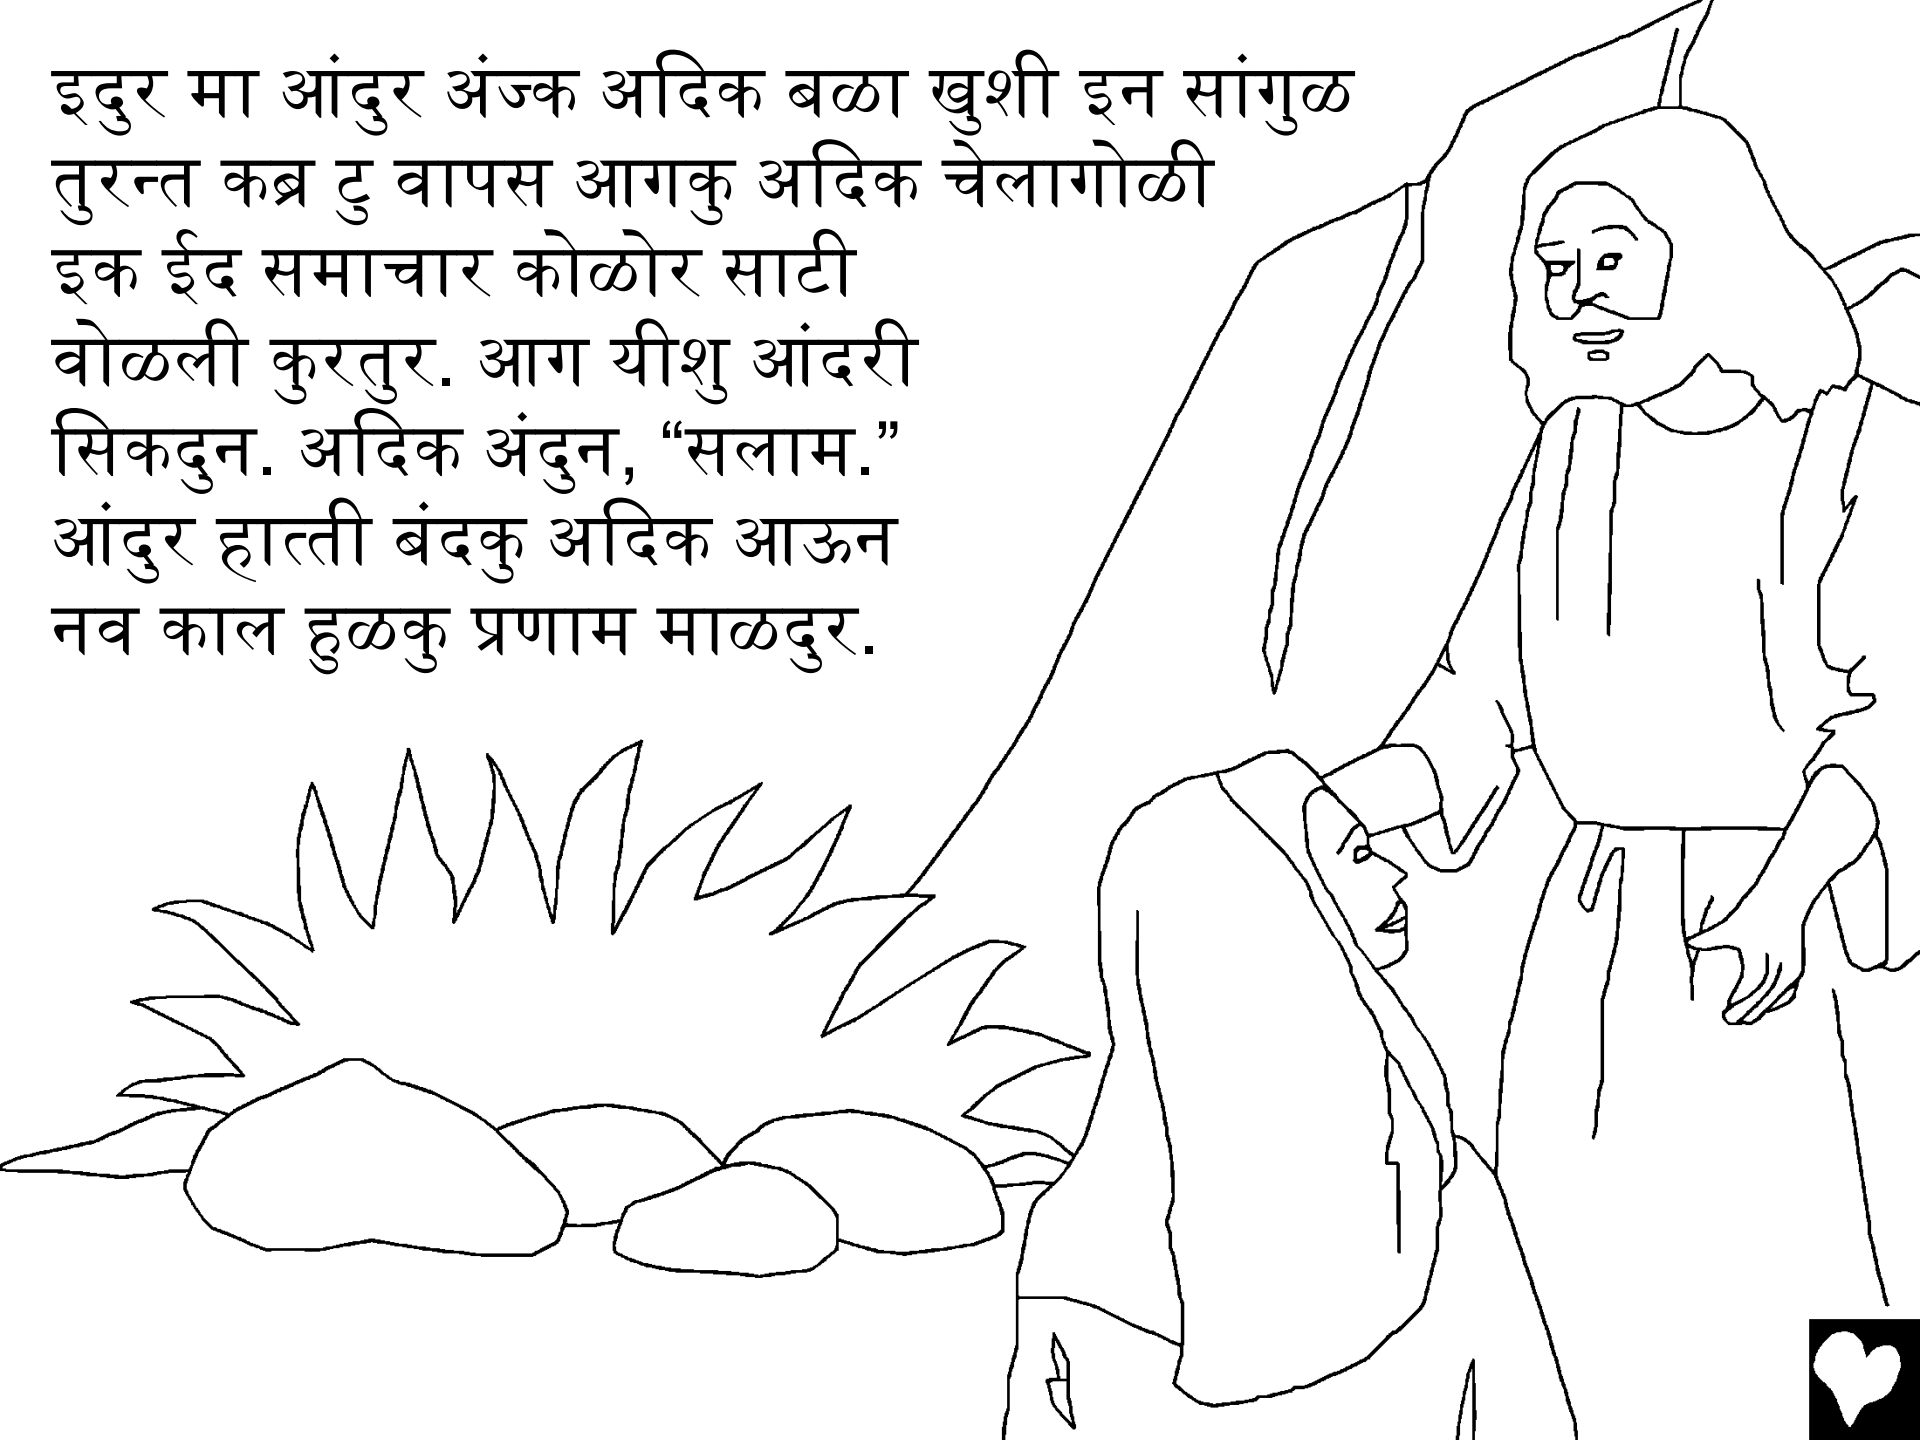 इदुर मा आंदुर अंज्क अदिक बळा खुशी इन सांगुळ
तुरन्त कब्र टु वापस आगकु अदिक चेलागोळी
इक ईद समाचार कोळोर साटी
वोळली कुरतुर. आग यीशु आंदरी
सिकदुन. अदिक अंदुन, “सलाम.”
आंदुर हात्ती बंदकु अदिक आऊन
नव काल हुळकु प्रणाम माळदुर.